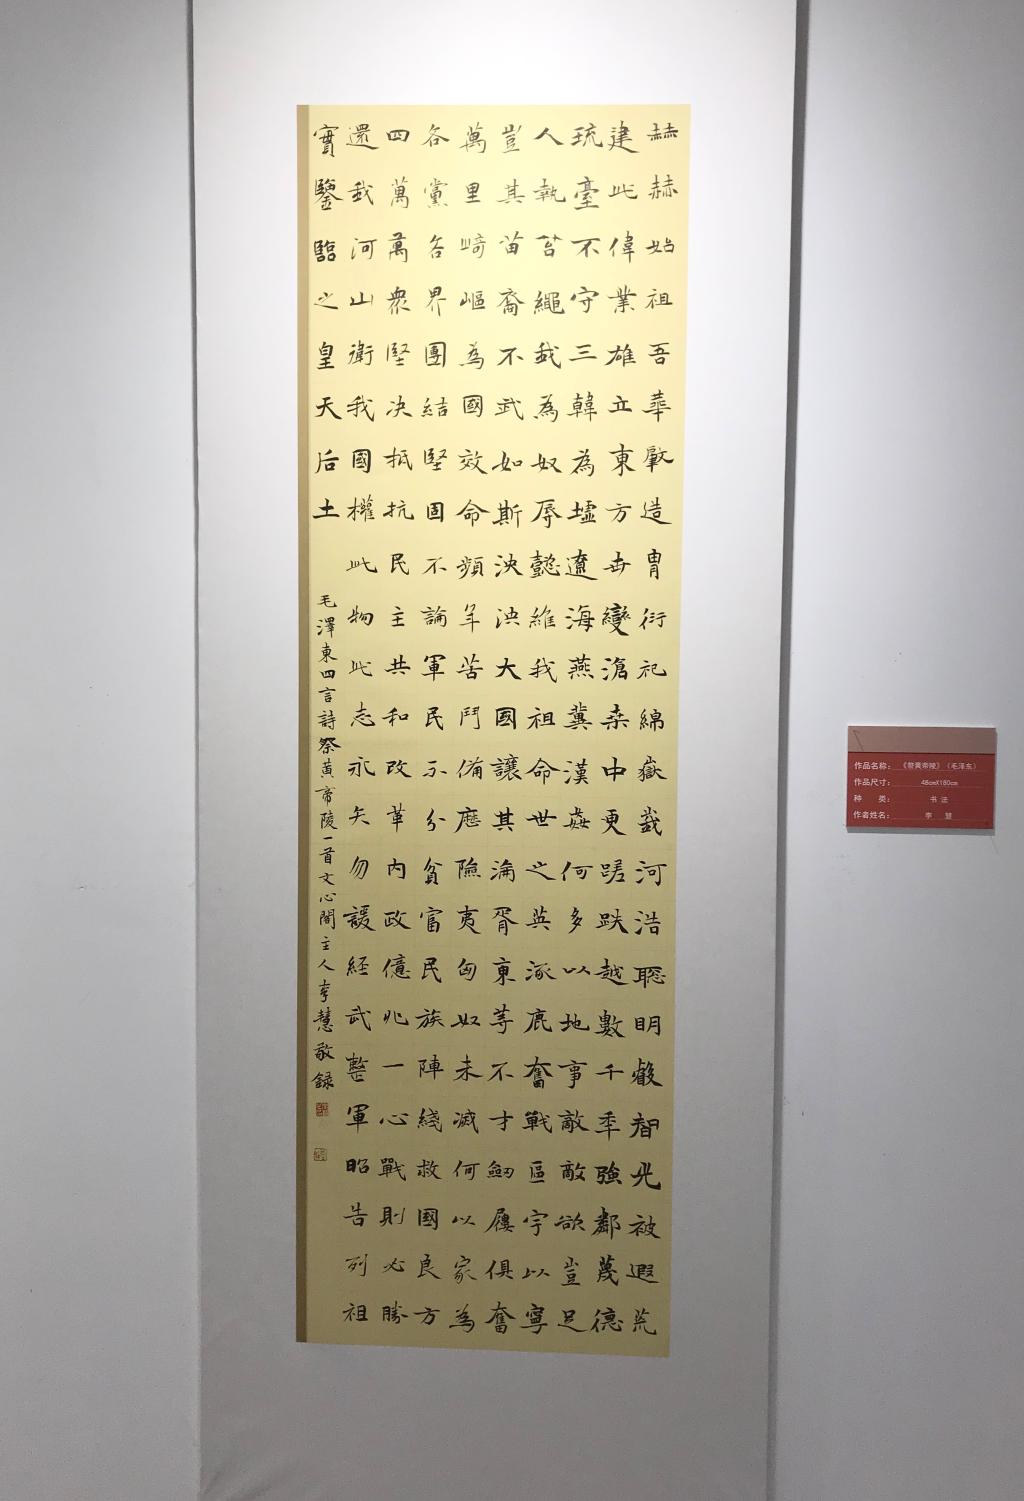 赫赫始祖吾華肇造冑衍祀綿嶽峩河浩聰明叡智光被遐荒
建此偉業雄立東方世變滄桑中更蹉跌越數千年強鄰蔑德
琉臺不守三韓為墟遼海燕冀漢姦何多以地事敵敵欲豈足
人執笞繩我為奴辱懿維我祖命世之英涿鹿奮戰區宇以寧
豈其苗裔不武如斯泱泱大國讓其淪胥東等不才劒屨俱奮
萬里崎嶇為國效命頻年苦鬥備歷險夷匈奴未滅何以家為
各黨各界團結堅固不論軍民不分貧富民族陣綫救國良方
四萬萬眾堅決抵抗民主共和改革內政億兆一心戰則必勝
還我河山衛我國權此物此志永矢勿諼經武整軍昭告列祖
實鑒臨之皇天后土
毛澤東四言詩祭黃帝陵一首文心閣主人李慧敬錄
作品名称：《祭黄帝陵》（毛泽东）
作品尺寸：48cmX180cm
种 类：书 法
作者姓名：李 慧